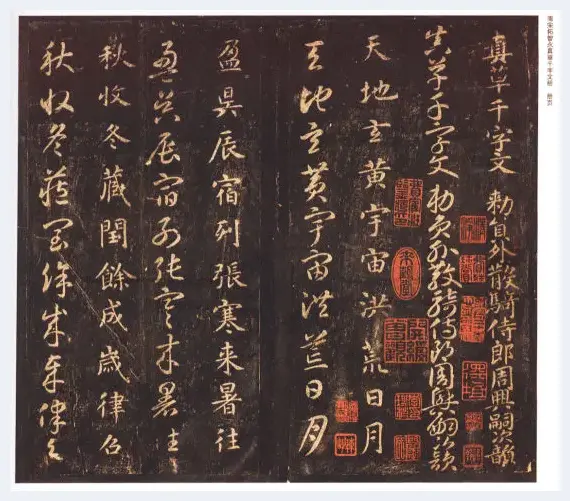 真草千字文 勑員外散騎侍郎周興嗣次韻
真草千字文 勑員外散騎侍郎周興嗣次韻
天地玄黃宇宙洪荒日月
天地玄黃宇宙洪荒日月
盈昃辰宿列張寒来暑往
盈昃辰宿列張寒来暑往
秋收冬藏閏餘成歲律召
秋收冬藏閏餘成歲律召